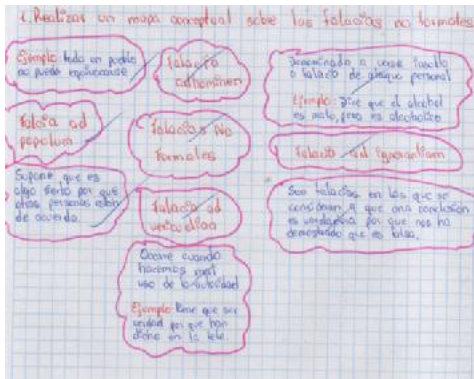 1. Realizar un mapa conceptual sobre las falacias no formales
Ejemplo: todo un pueblo
no puede equivocarse
Falacia
Denominado a veces insulto
o falacia de ataque personal
Ejemplo: Dice que el alcohol
es malo, pero es alcoholico
Falacia ad
populum
Falacias No
Formales
Falacia ad ignorantiam
Supone que es
algo cierto por que
otras personas estan
de acuerdo.
Falacia ad
Son falacias en las que se
a que una conclusion
es verdadera por que nos ha
demostrado que es falsa.
Ocurre cuando
hacemos mal
uso de la autoridad
Ejemplo: Tiene que ser
verdad por que han
dicho en la tele.